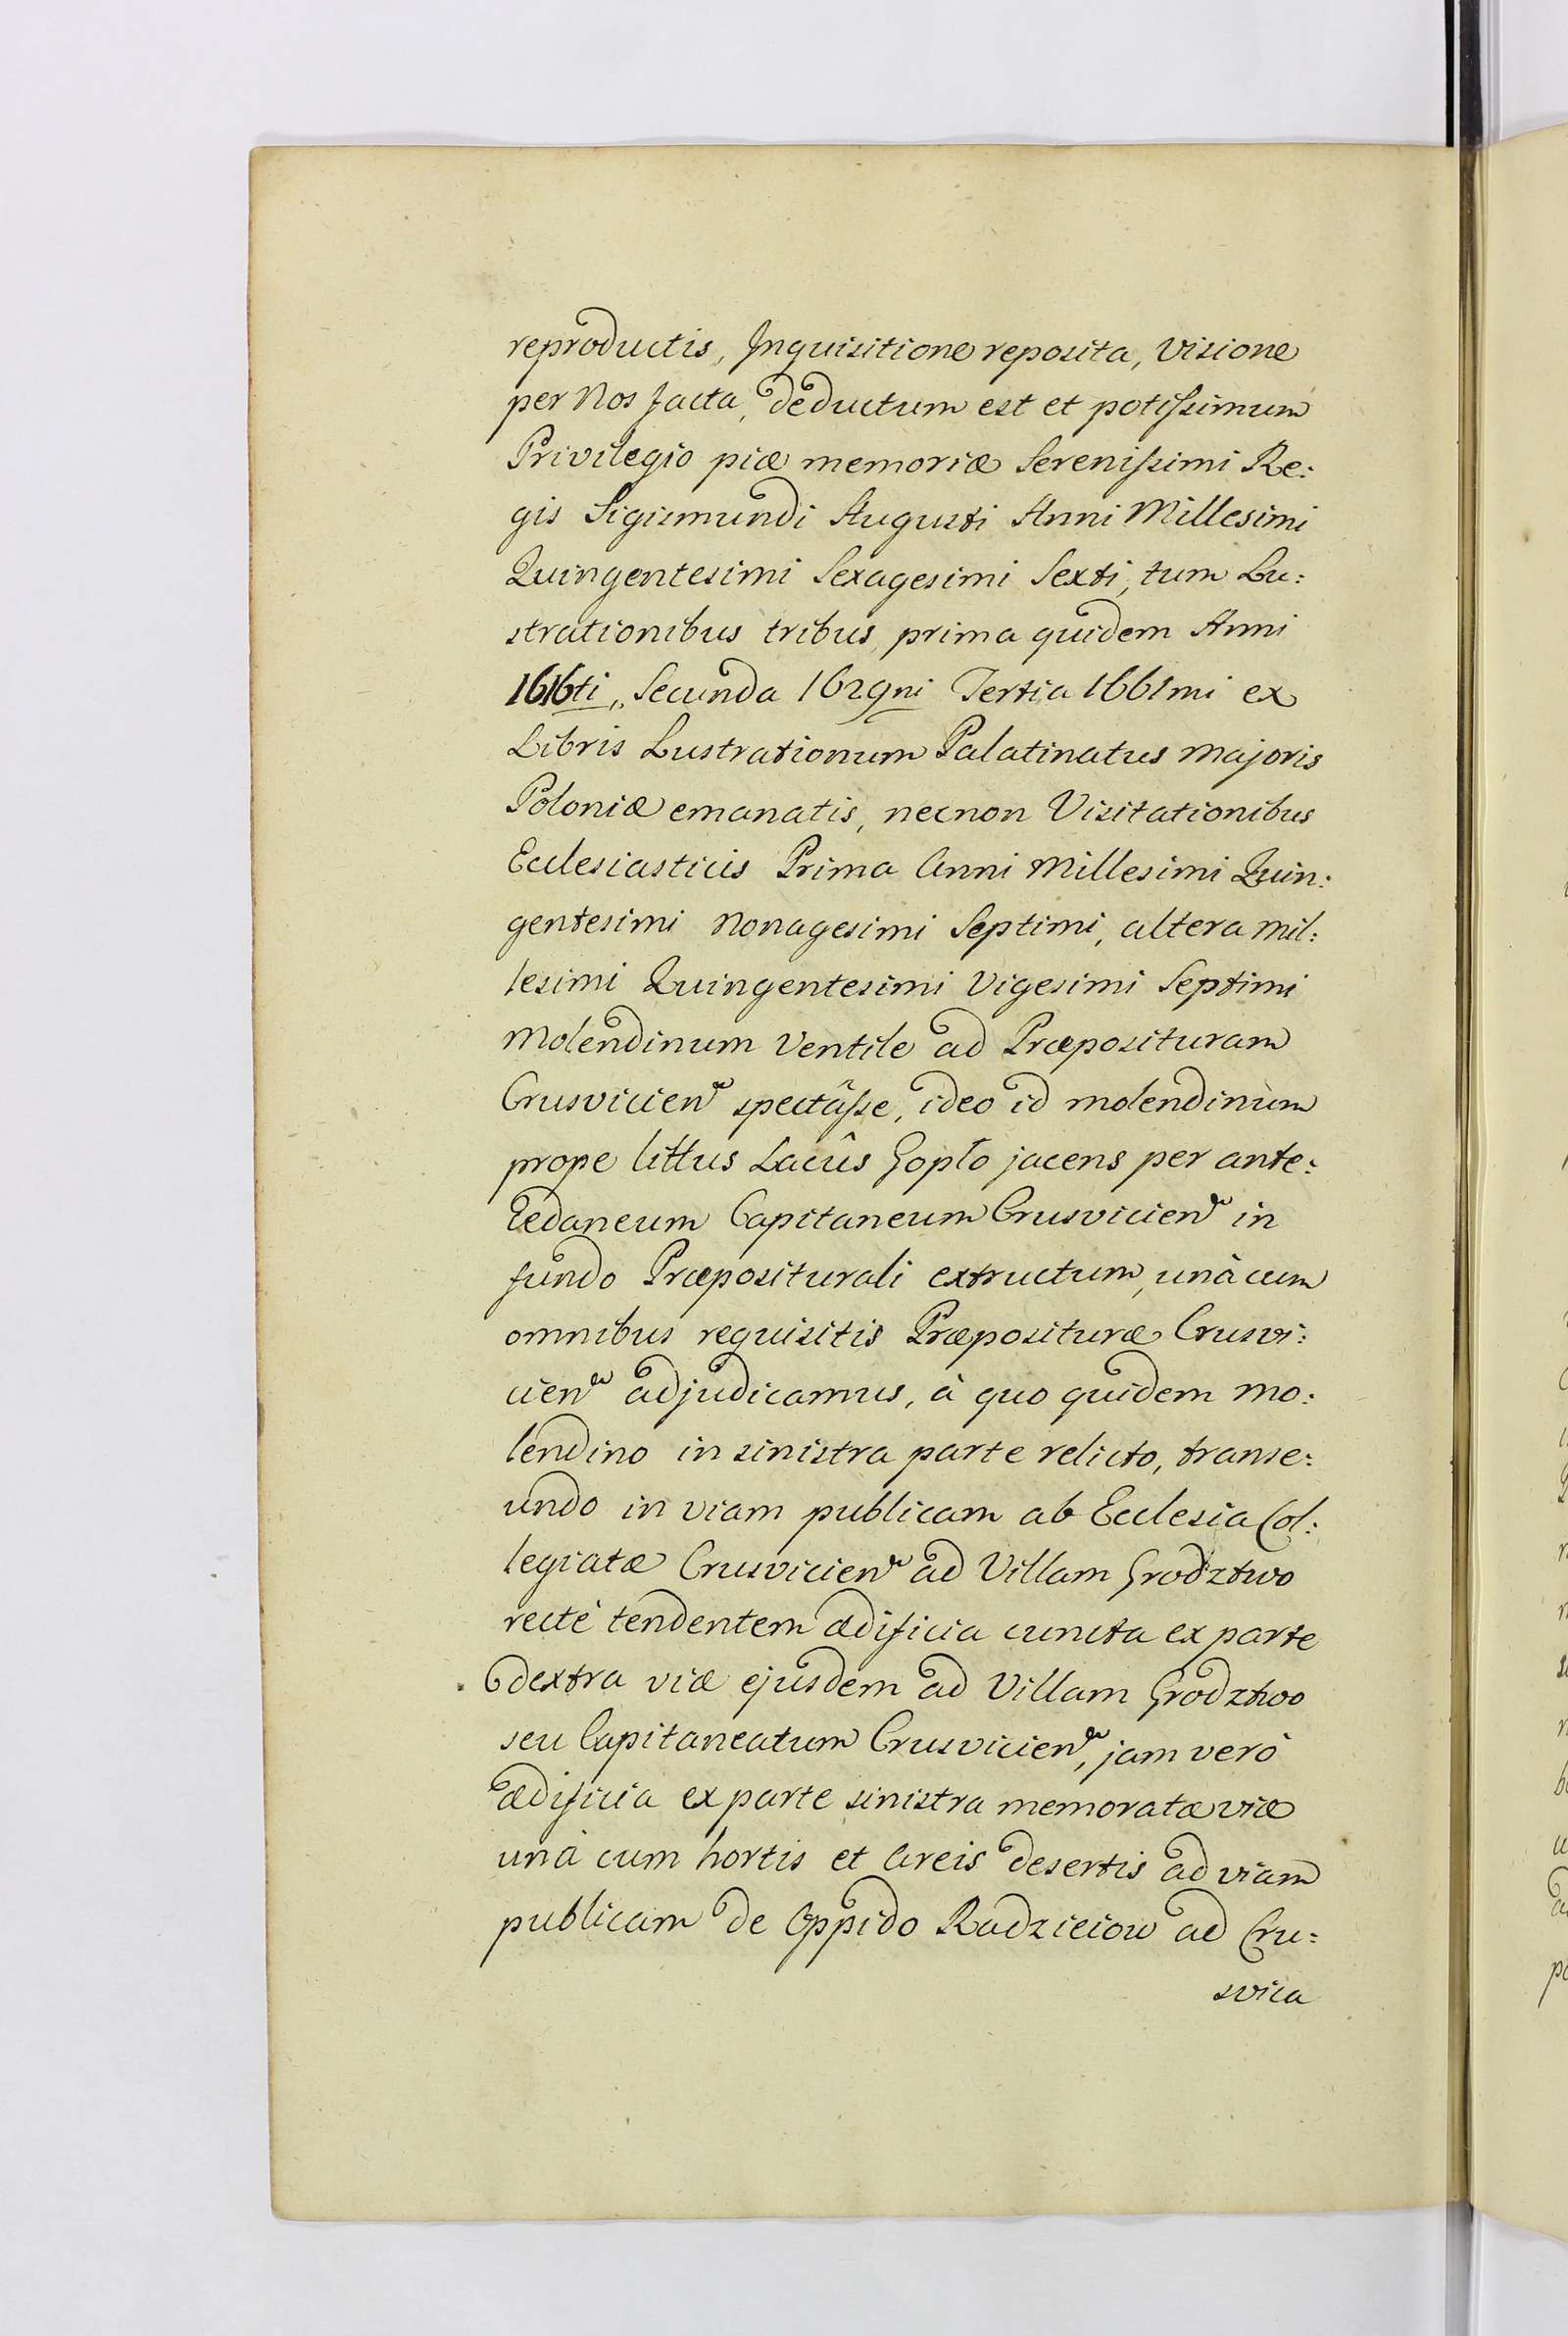 reproductis, Inquisitione reposita, Visione
per Nos facta, deductum est et potissimum
Privilegio piæ memoriæ Serenissimi Re:
gis Sigismundi Augusti Anni Millesimi
Quingentesimi Sexagesimi Sexti, tum Lu:
strationibus tribus, prima quidem Anni
1616ti, Secunda 1629ni Tertia 1661mi ex
Libris Lustrationum Palatinatus Majoris
Poloniæ emanatis, necnon Visitationibus
Ecclesiasticis Prima Anni Millesimi Quin:
gentesimi Nonagesimi Septimi, altera Mil:
lesimi Quingentesimi Vigesimi Septimi
Molendinum Ventile ad Præposituram
Crusvicien spectâsse, ideo id molendinùm
prope littus Lacûs Gopło jacens per ante:
cedaneum Capitaneum Crusvicien in
fundo Præpositurali extructum, unà cum
omnibus requisitis Præposituræ Crusvi:
cien adjudicamus, à quo quidem mo:
lendino in sinistra parte relicto, transe:
undo in viam publicam ab Ecclesia Col:
legiatæ Crusvicien ad Villam Grodztwo
rectè tendentem ædificia cuncta ex parte
dextra viæ ejusdem ad Villam Grodztwo
seu Capitaneatum Crusvicien, jam verò
ædificia ex parte sinistra memoratæ viæ
unà cum hortis et Areis desertis ad viam
publicam de Oppido Radzieiow ad Cru:
svica